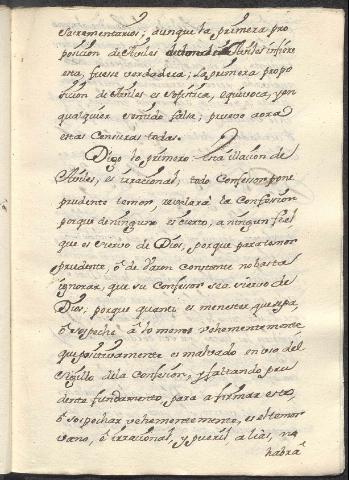 Sacrementarios; aunque la primera pro
posicion de Aviles de donde Aviles infiere
esta, fuese verdadera; la primera propo
sicion de Aviles es sofistica, equivoca, y en
qualquier sentido falsa; pruevo aora
estas censuras todas.
Digo lo primero esta illacion de
Aviles, es irracional, todo Confesor pone
prudente temor, revelarà la Confesion
porque de ninguno es cierto, a ningun fiel
que es siervo de Dios, porque para temor
prudente, ò de Varon Constante no basta
ignorar, que su Confesor sea siervo de
Dios, porque quanto es menester que sepa,
ò sospeche à lo menos vehementemente
que positivamente es malvado en uso del
Sigillo de la Confesion, y faltando pru
dente fundamento, para afirmar esto,
ò sospechar vehementemente, es el temor
vano, è irracional, y pueril, alias, no
habra